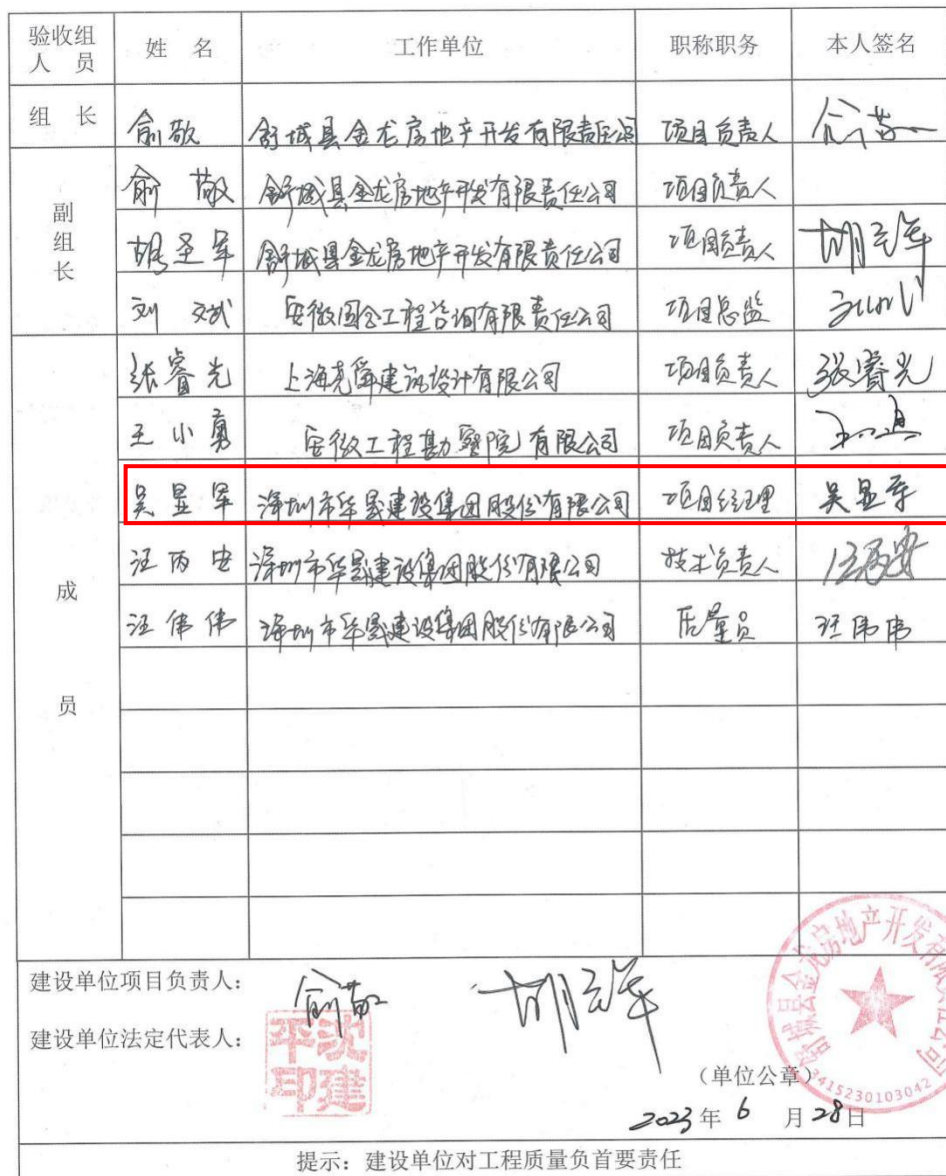 验收组人员 姓 名 工作单位 职称职务 本人签名
组 长 俞敬 舒城县金龙房地产开发有限责任公司 项目负责人 俞敬
副组长 俞 敬 舒城县金龙房地产开发有限责任公司 项目负责人
胡圣军 舒城县金龙房地产开发有限责任公司 项目负责人 胡圣军
刘 斌 安徽国合工程咨询有限责任公司 项目总监
成员 张睿光 上海尧舜建筑设计有限公司 项目负责人 张睿光
王小勇 安徽工程勘察院有限公司 项目负责人
吴显军 深圳市华晟建设集团股份有限公司 项目经理 吴显军
汪丙安 深圳市华晟建设集团股份有限公司 技术负责人 汪丙安
汪伟伟 深圳市华晟建设集团股份有限公司 质量员 汪伟伟
建设单位项目负责人: 俞敬 胡圣军
建设单位法定代表人:
沈建平印
舒城县金龙房地产开发有限责任公司
3415230103042
(单位公章)
2023年 6 月 28日
提示: 建设单位对工程质量负首要责任